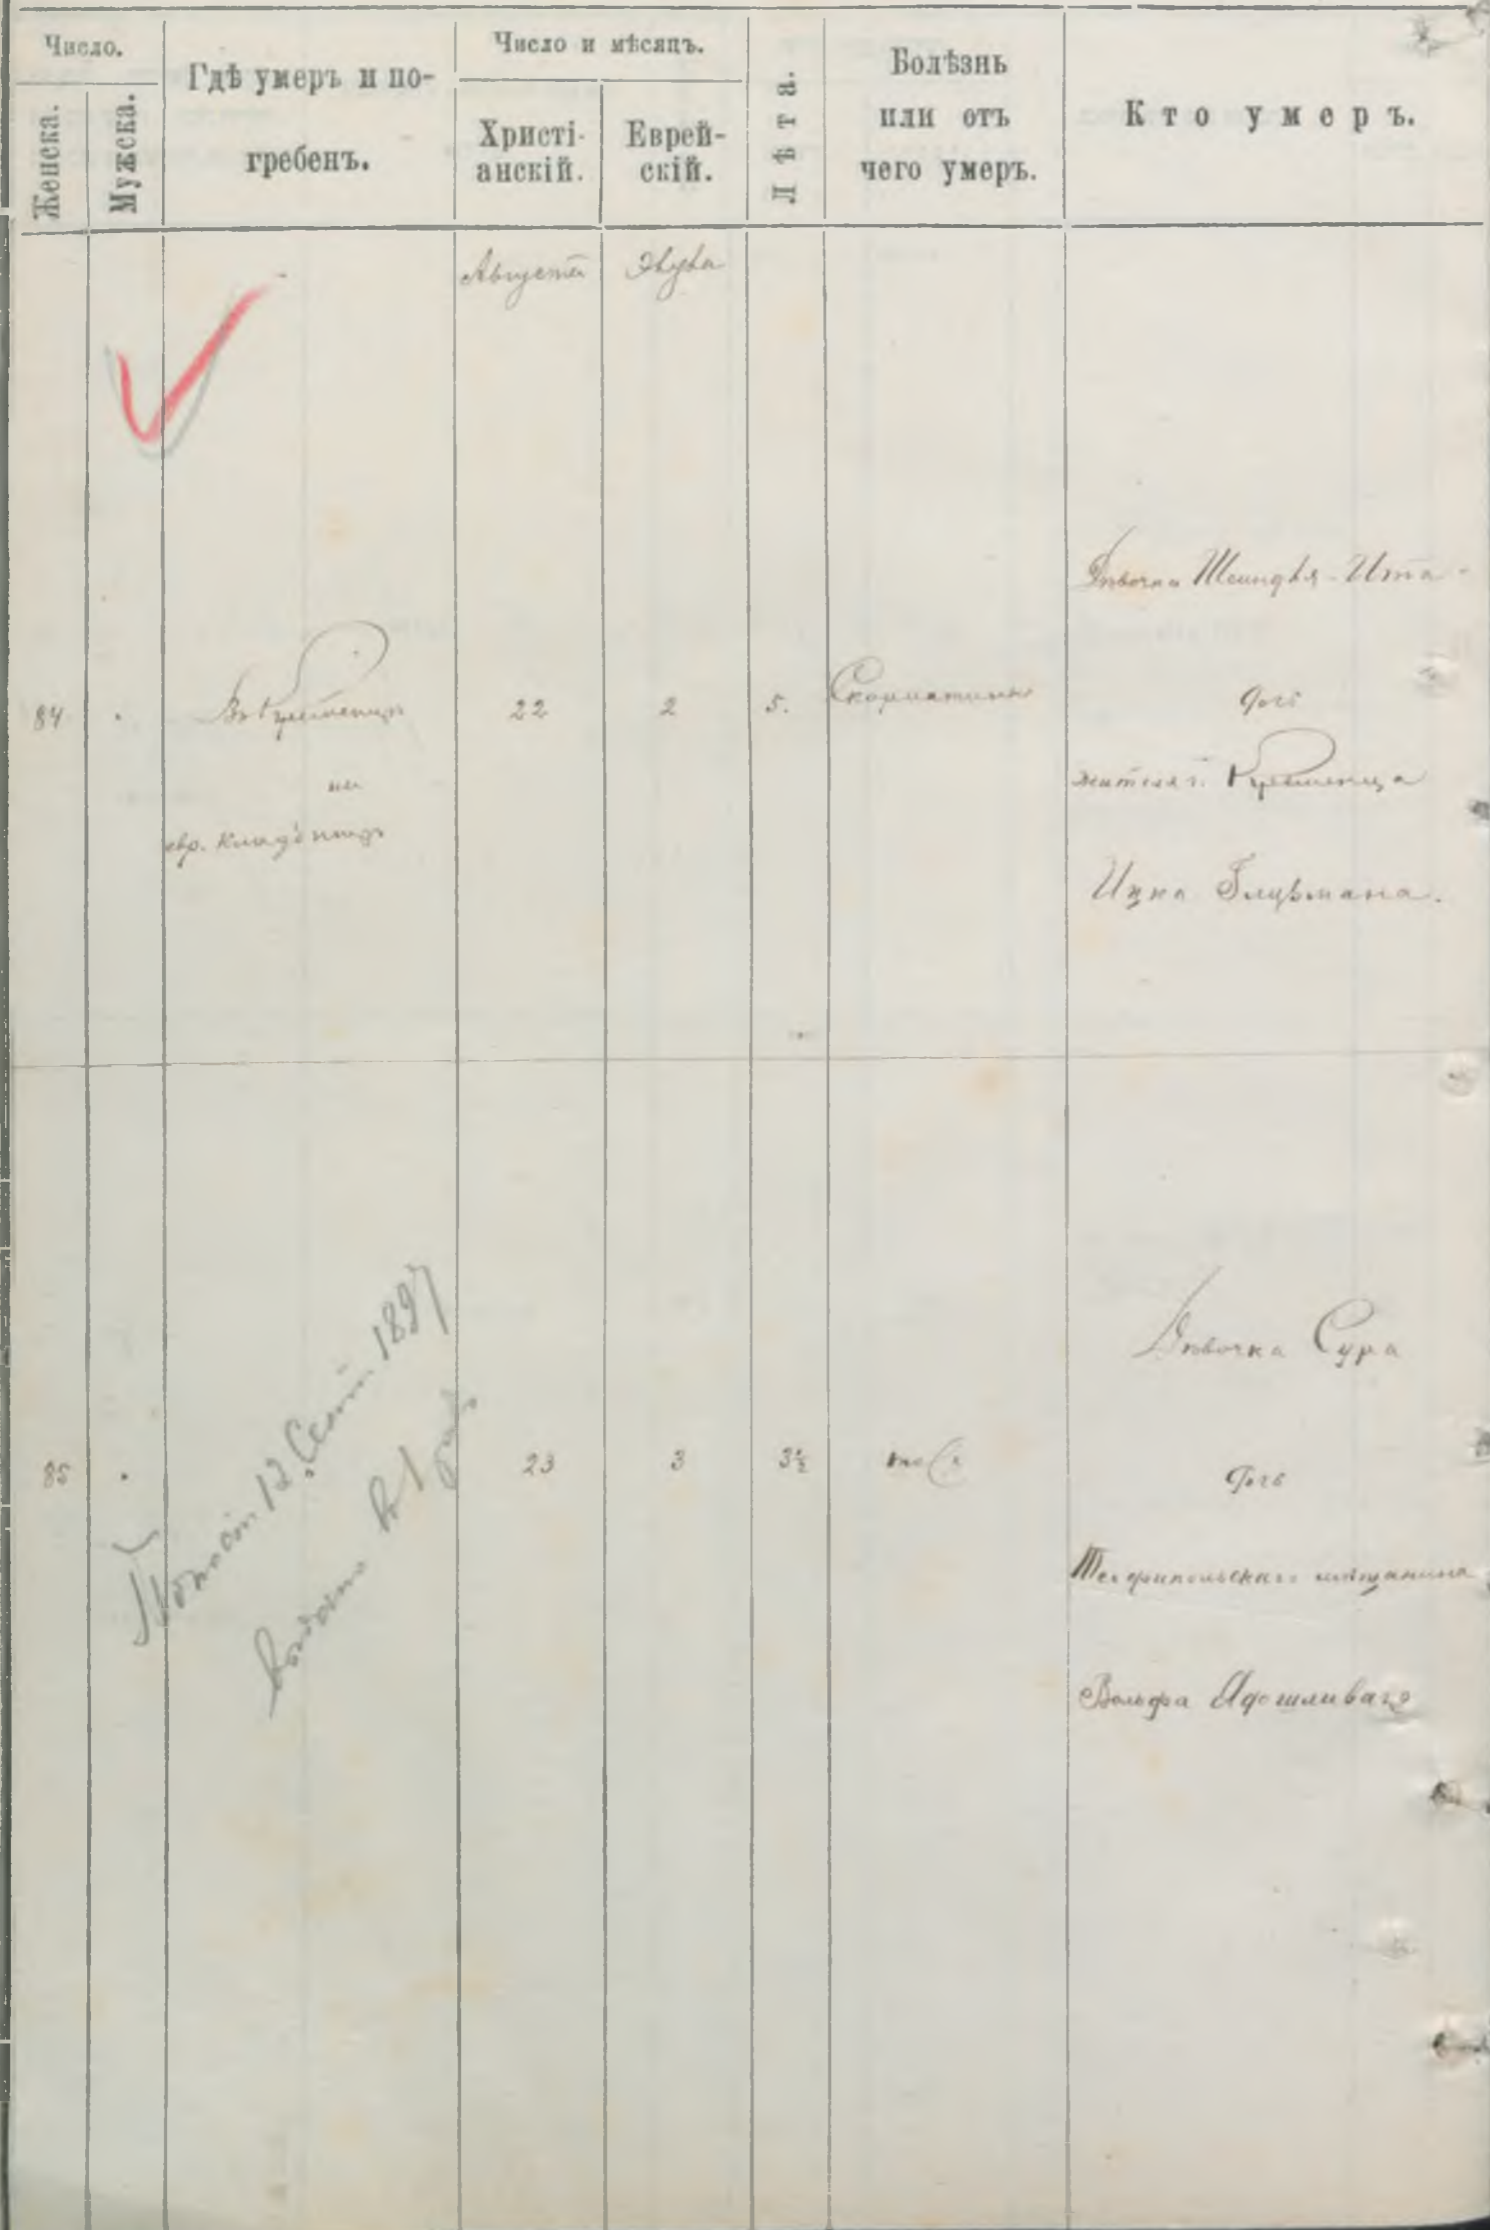 Число.
Женска.
Мужска.
Гдѣ умеръ и по-
гребенъ.
Число и мѣсяцъ.
Христі-
анскій.
Еврей-
скій.
Лѣта.
Болѣзнь
или отъ
чего умеръ.
Кто умеръ.
Августа
Элула
84
Въ Кременцѣ
на
евр. кладбищѣ
22
2
5.
Скорлатина
Дѣвочка Шейндля-Ита-
дочь
жителя г. Кременца
Ицка Глузмана.
85
23
3
3½
Дѣвочка Сура
дочь
Теофипольскаго мѣщанина
Вольфа
12 Сент. 1897